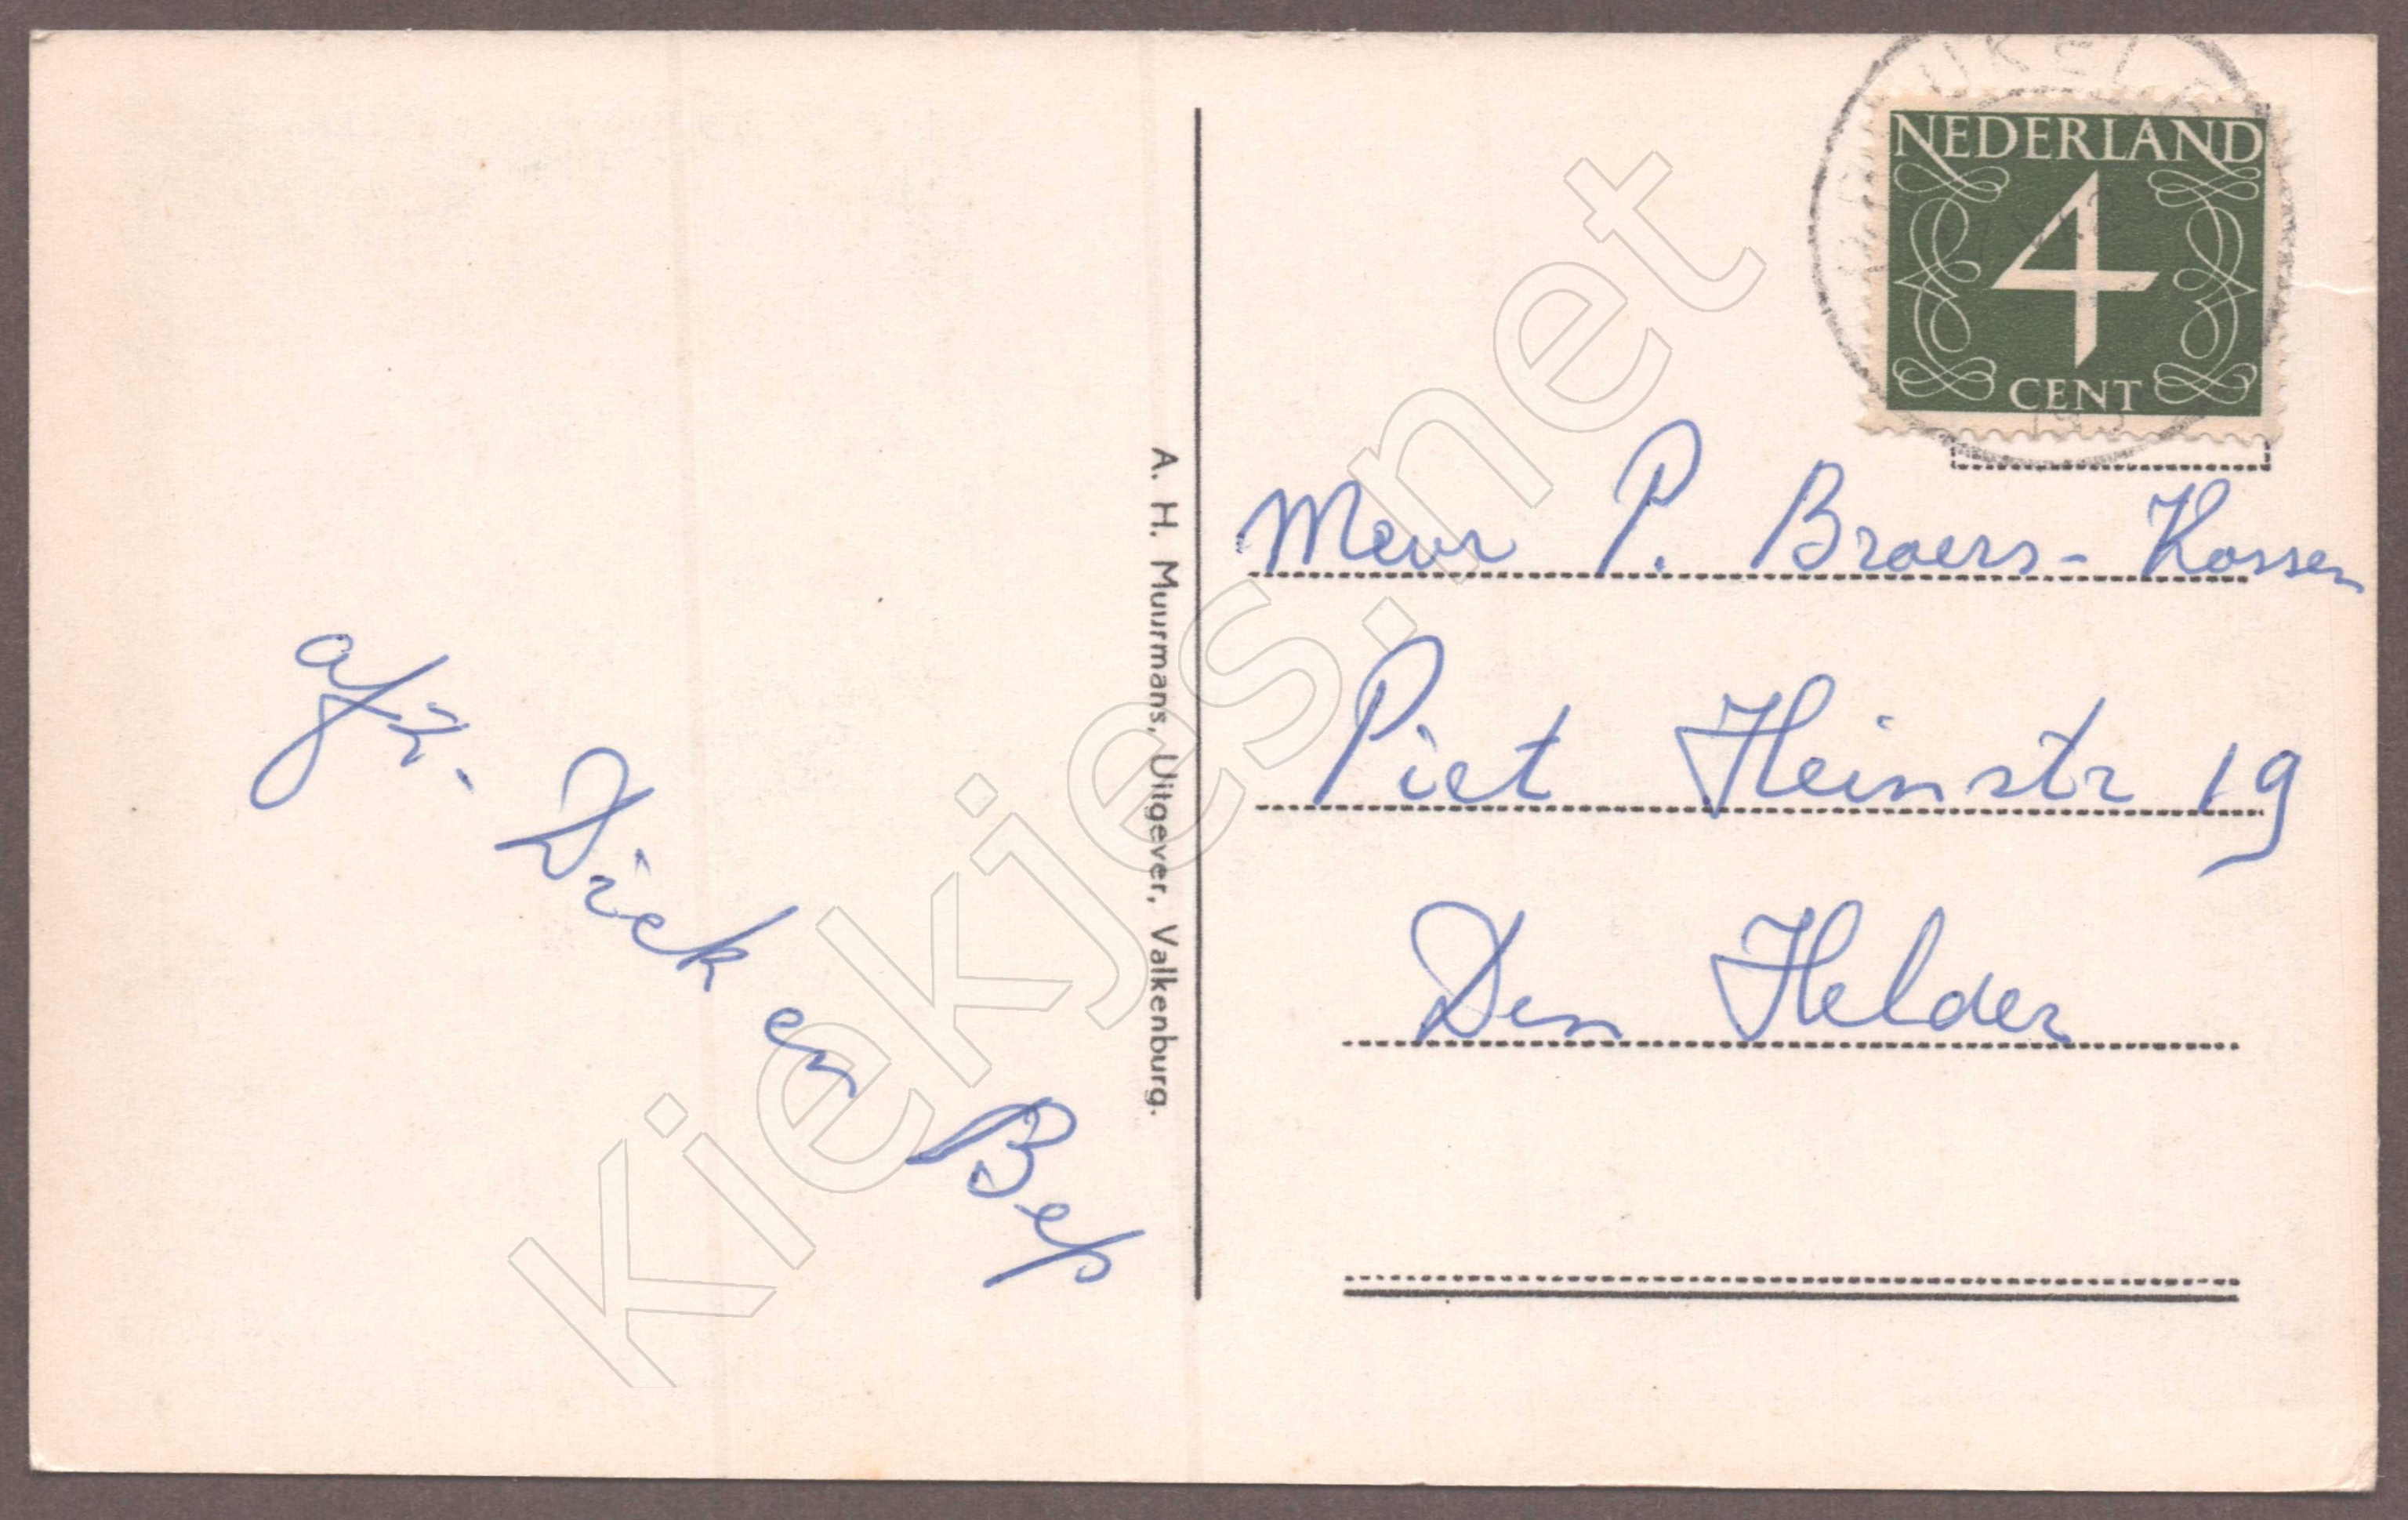 NEDERLAND
4
CENT
Mevr P. Broers-Kossen
Piet Heinstr 19
Den Helder
afz. Dick en Bep
A. H. Muurmans, Uitgever, Valkenburg.
Kiekjes.net